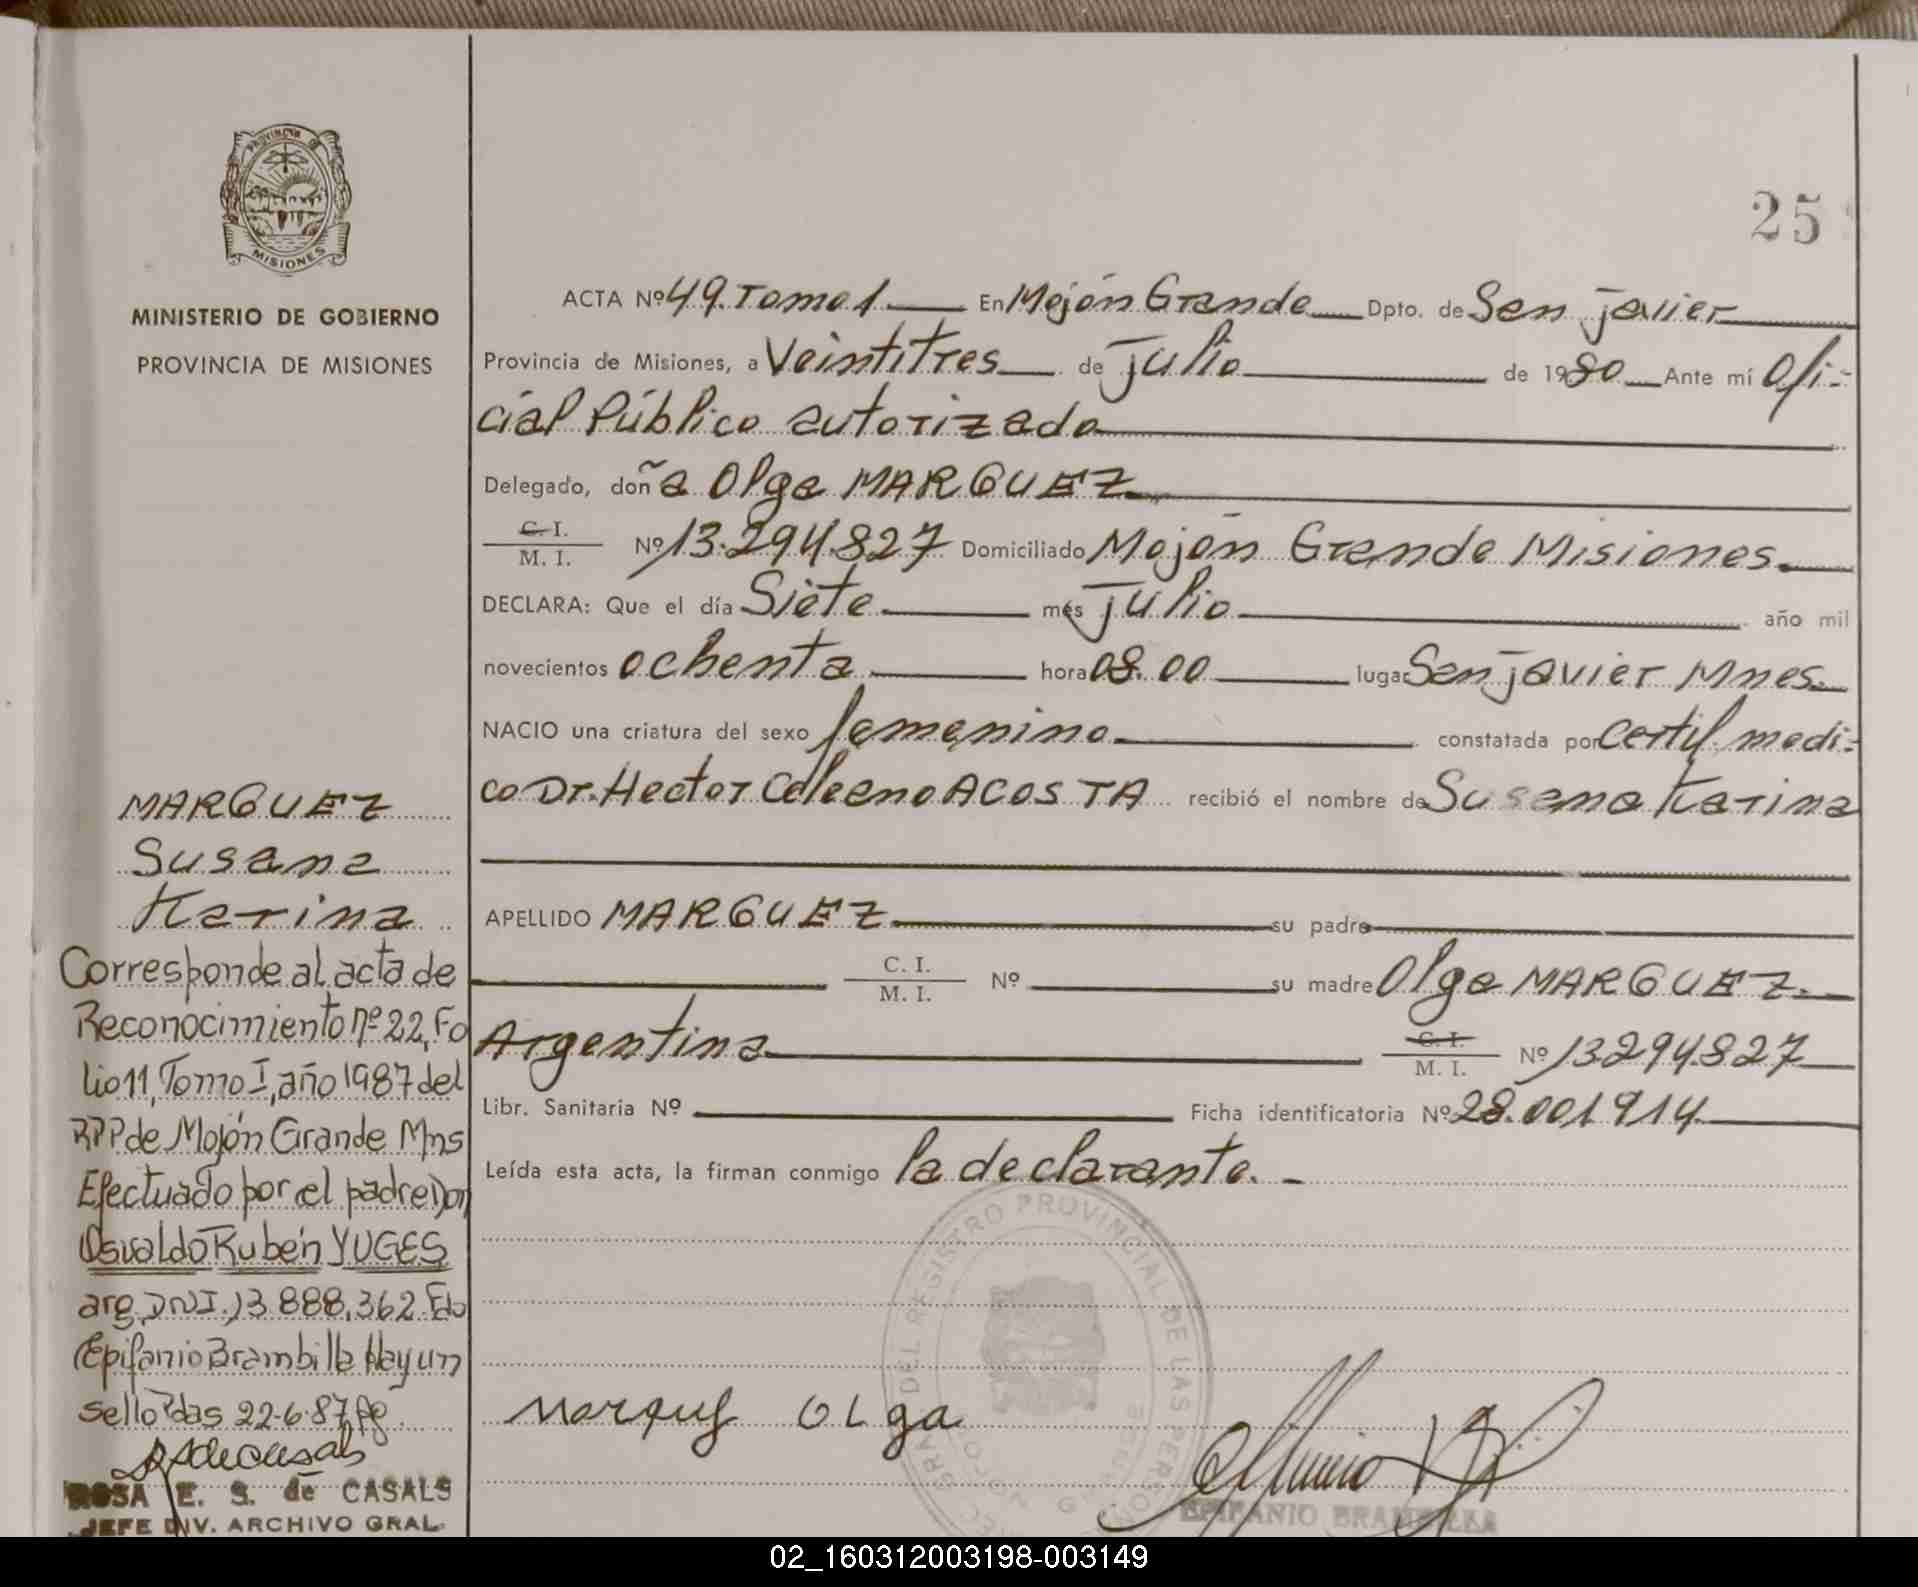 PROVINCIA DE
MISIONES
MINISTERIO DE GOBIERNO
PROVINCIA DE MISIONES
25
ACTA Nº 49. Tomo 1 En Mojón Grande Dpto. de San Javier
Provincia de Misiones, a Veintitres de Julio de 1980 Ante mí Ofi-
cial Público autorizado
Delegado, doña Olga MARQUEZ
C. I.
M. I. Nº 13.294.827 Domiciliado Mojón Grande Misiones.
DECLARA: Que el día Siete mes Julio año mil
novecientos ochenta hora 08.00 lugar San Javier Mnes.
NACIO una criatura del sexo femenino constatada por Certif. medi-
co Dr. Hector ACOSTA recibió el nombre de Susana Karina
APELLIDO MARQUEZ su padre
C. I.
M. I. Nº su madre Olga MARQUEZ.
Argentina C. I.
M. I. Nº 13294.827
Libr. Sanitaria Nº Ficha identificatoria Nº 28.001914
Leída esta acta, la firman conmigo la declarante. -
MARQUEZ
Susana
Karina
Corresponde al acta de
Reconocimiento nº 22, Fo
lio 11, Tomo I, año 1987 del
RPP de Mojón Grande Mns
Efectuado por el padre Don
Osvaldo Rubén YUGES
arg. DNI. 13.888.362. Fdo
Epifanio Brambilla Hay un
sello Pdas 22-6-87
ROSA E. S. de CASALS
JEFE DIV. ARCHIVO GRAL.
Marquez OLga
DEL REGISTRO PROVINCIAL DE LAS PERSO
EPIFANIO BRAMBILLA
02_160312003198-003149